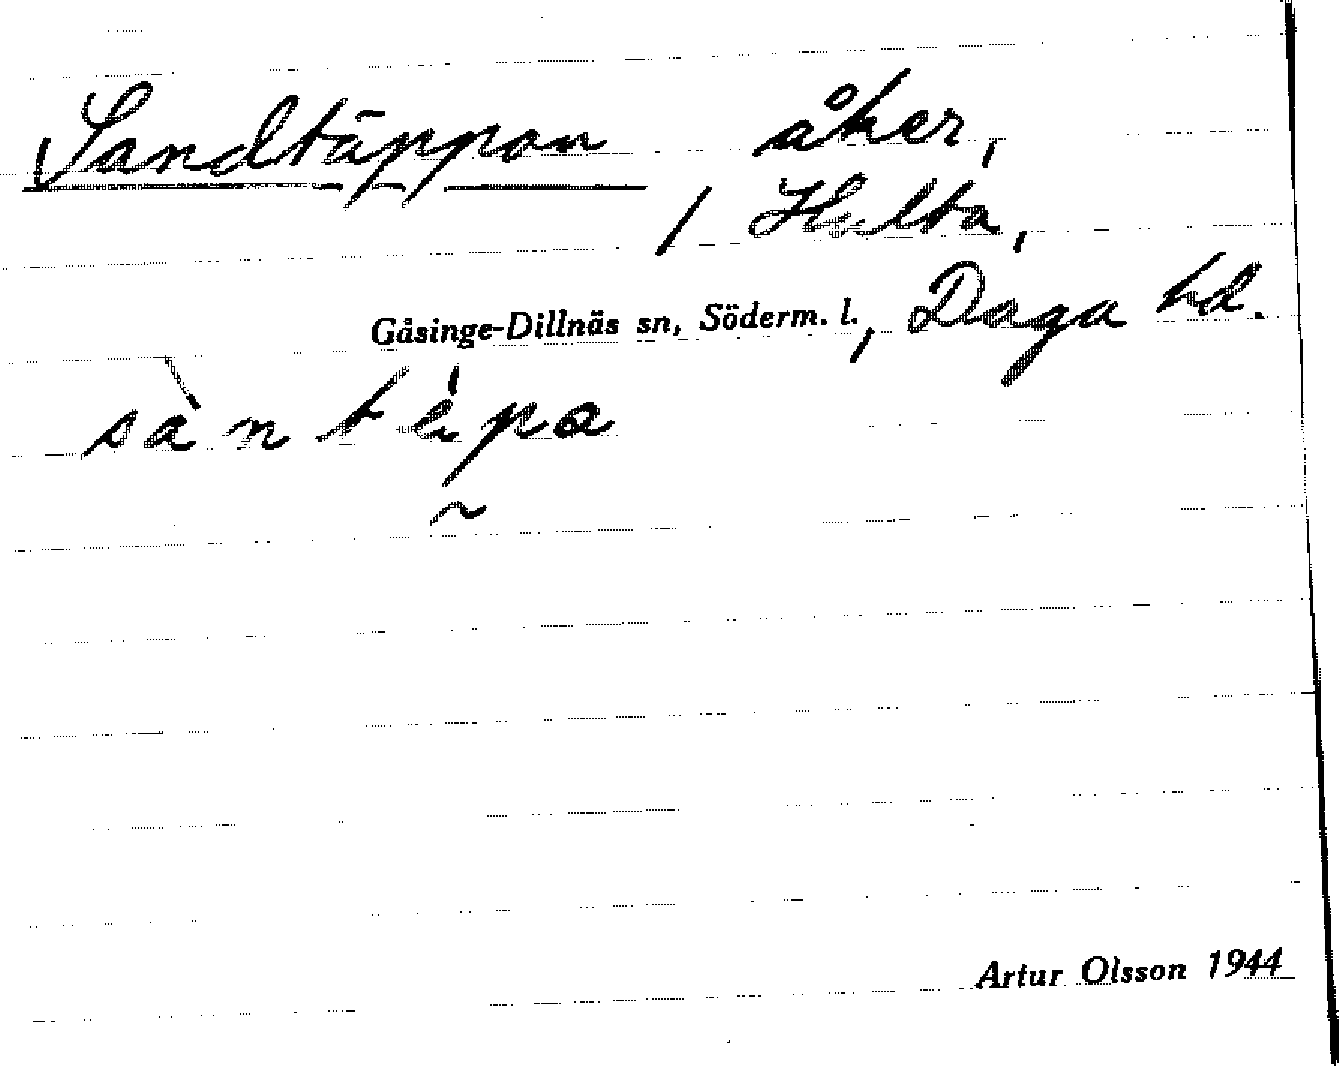 Sandtäppan åker,
/ Hulta,
Gåsinge-Dillnäs sn, Söderm. l., Daga hd.
sàntépa
Artur Olsson 1944